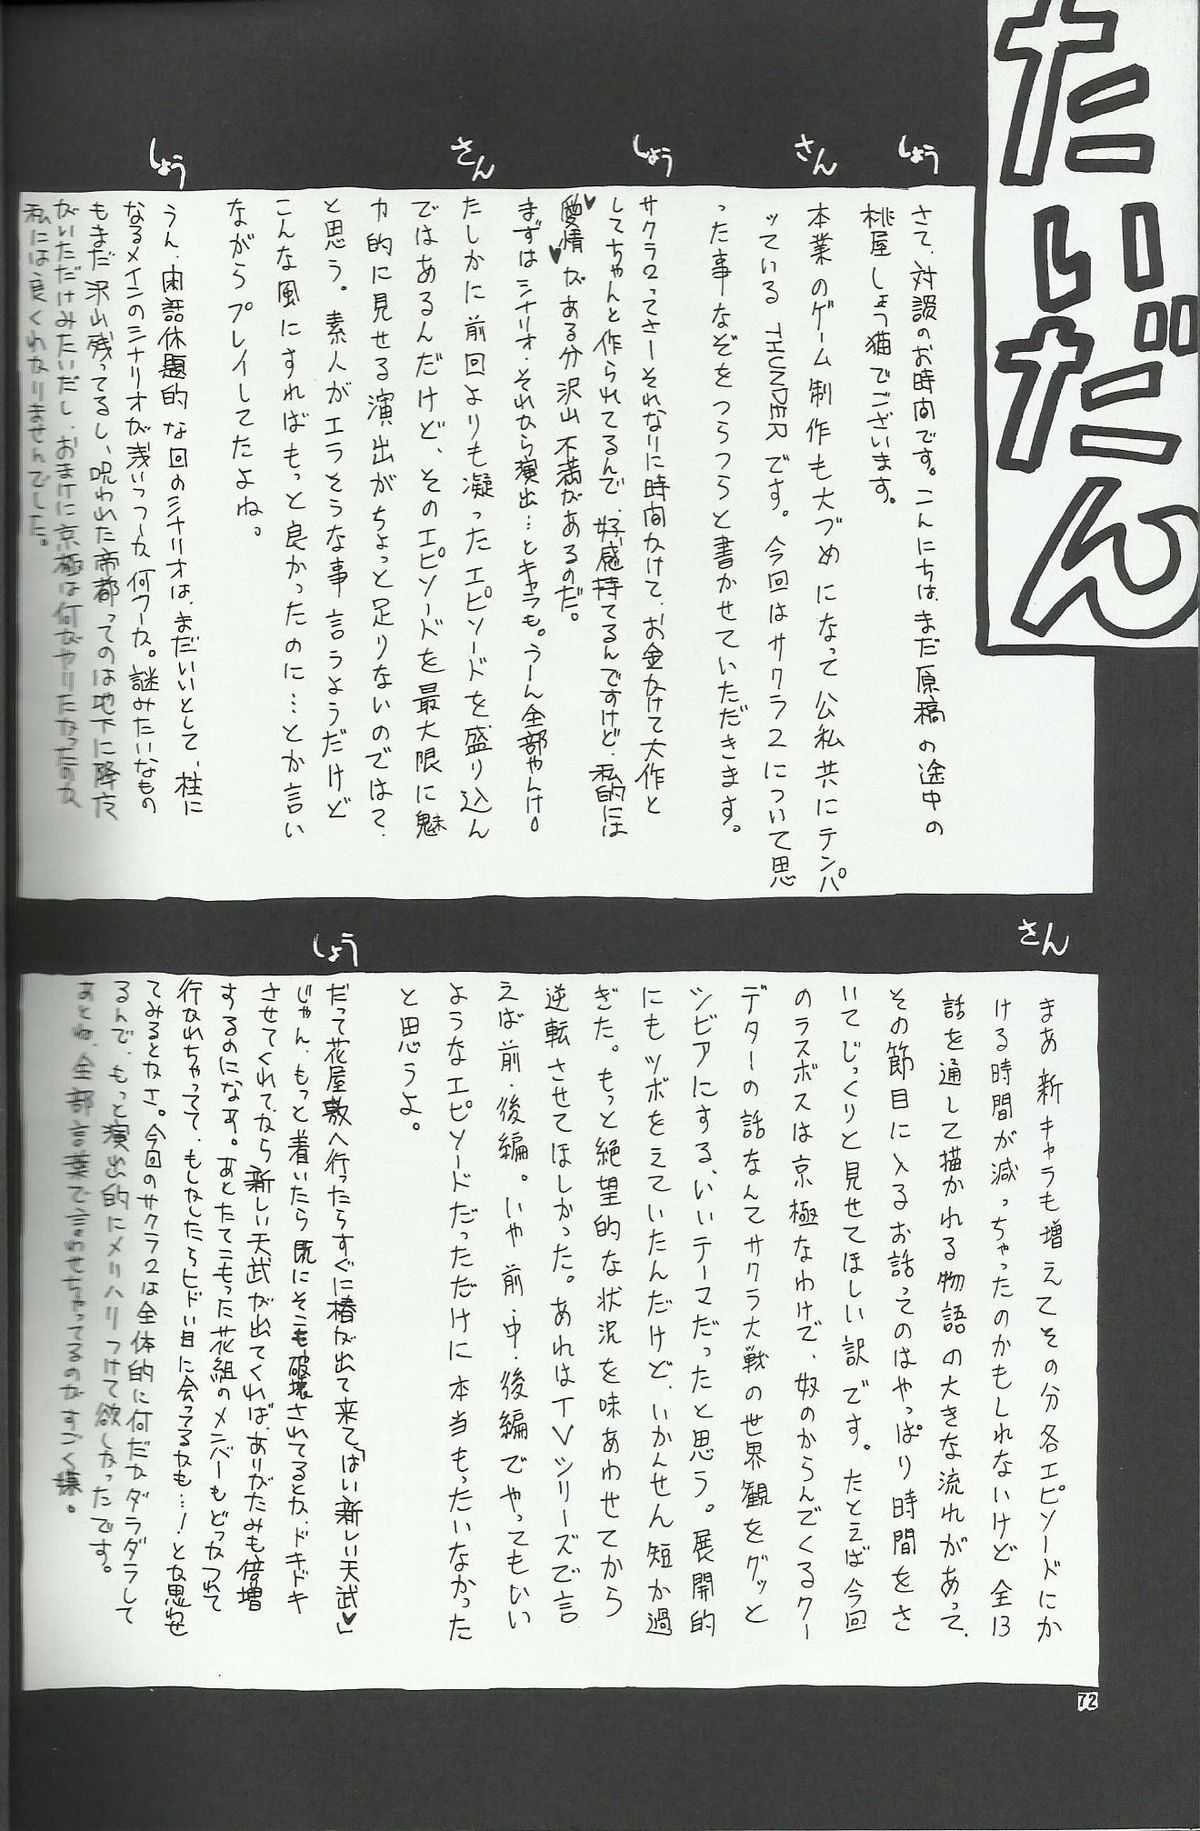 たいだん
しょう
さて、対談のお時間です。こんにちは、まだ原稿の途中の
桃屋しょう猫でございます。
さん
本業のゲーム制作も大づめになって公私共にテンパ
ッている THUNDERです。今回はサクラ2について思
った事なぞをつらつらと書かせていただきます。
しょう
サクラ2ってさーそれなりに時間かけて、お金かけて大作と
してちゃんと作られてるんで、好感持てるんですけど、私的には
愛情がある分沢山不満があるのだ。
まずはシナリオ・それから演出…とキャラも。うーん全部やんけ。
さん
たしかに前回よりも凝ったエピソードを盛り込ん
ではあるんだけど、そのエピソードを最大限に魅
力的に見せる演出がちょっと足りないのでは?
と思う。素人がエラそうな事言うようだけど
こんな風にすればもっと良かったのに…とか言い
ながらプレイしてたよね。
しょう
うん、閑話休題的な回のシナリオは、まだいいとして、柱に
なるメインのシナリオが浅いつーか何つーか。謎みたいなもの
もまだ沢山残ってるし、呪われた帝都ってのは地下に降魔
がいただけみたいだし、おまけに京極は何がやりたかったのか
私には良くわかりませんでした。
さん
まあ新キャラも増えてその分各エピソードにか
ける時間が減っちゃったのかもしれないけど全13
話を通して描かれる物語の大きな流れがあって、
その節目に入るお話ってのはやっぱり時間をさ
いてじっくりと見せてほしい訳です。たとえば今回
のラスボスは京極なわけで、奴のからんでくるクー
デターの話なんてサクラ大戦の世界観をグッと
シビアにする、いいテーマだったと思う。展開的
にもツボをえていたんだけど、いかんせん短か過
ぎた。もっと絶望的な状況を味あわせてから
逆転させてほしかった。あれはTVシリーズで言
えば前・後編。いや前・中・後編でやってもいい
ようなエピソードだっただけに本当もったいなかった
と思うよ。
しょう
だって花屋敷へ行ったらすぐに椿が出て来て、「はい新しい天武♥」
じゃん、もっと着いたら既にそこも破壊されてるとか、ドキドキ
させてくれて、なら新しい天武が出てくれば、ありがたみも倍増
するのになぁ。あとたてこもった花組のメンバーもどっかつれて
行かれちゃってて、もしかしたらヒドい目に会ってるかも…!とか思わせ
てみるとかさ。今回のサクラ2は全体的に何だかダラダラして
るんで、もっと演出的にメリハリつけて欲しかったです。
あとね、全部言葉で言わせちゃってるのがすごく嫌。
72